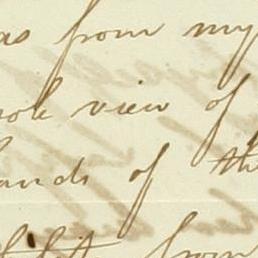 as from my
view of
ands of th
from